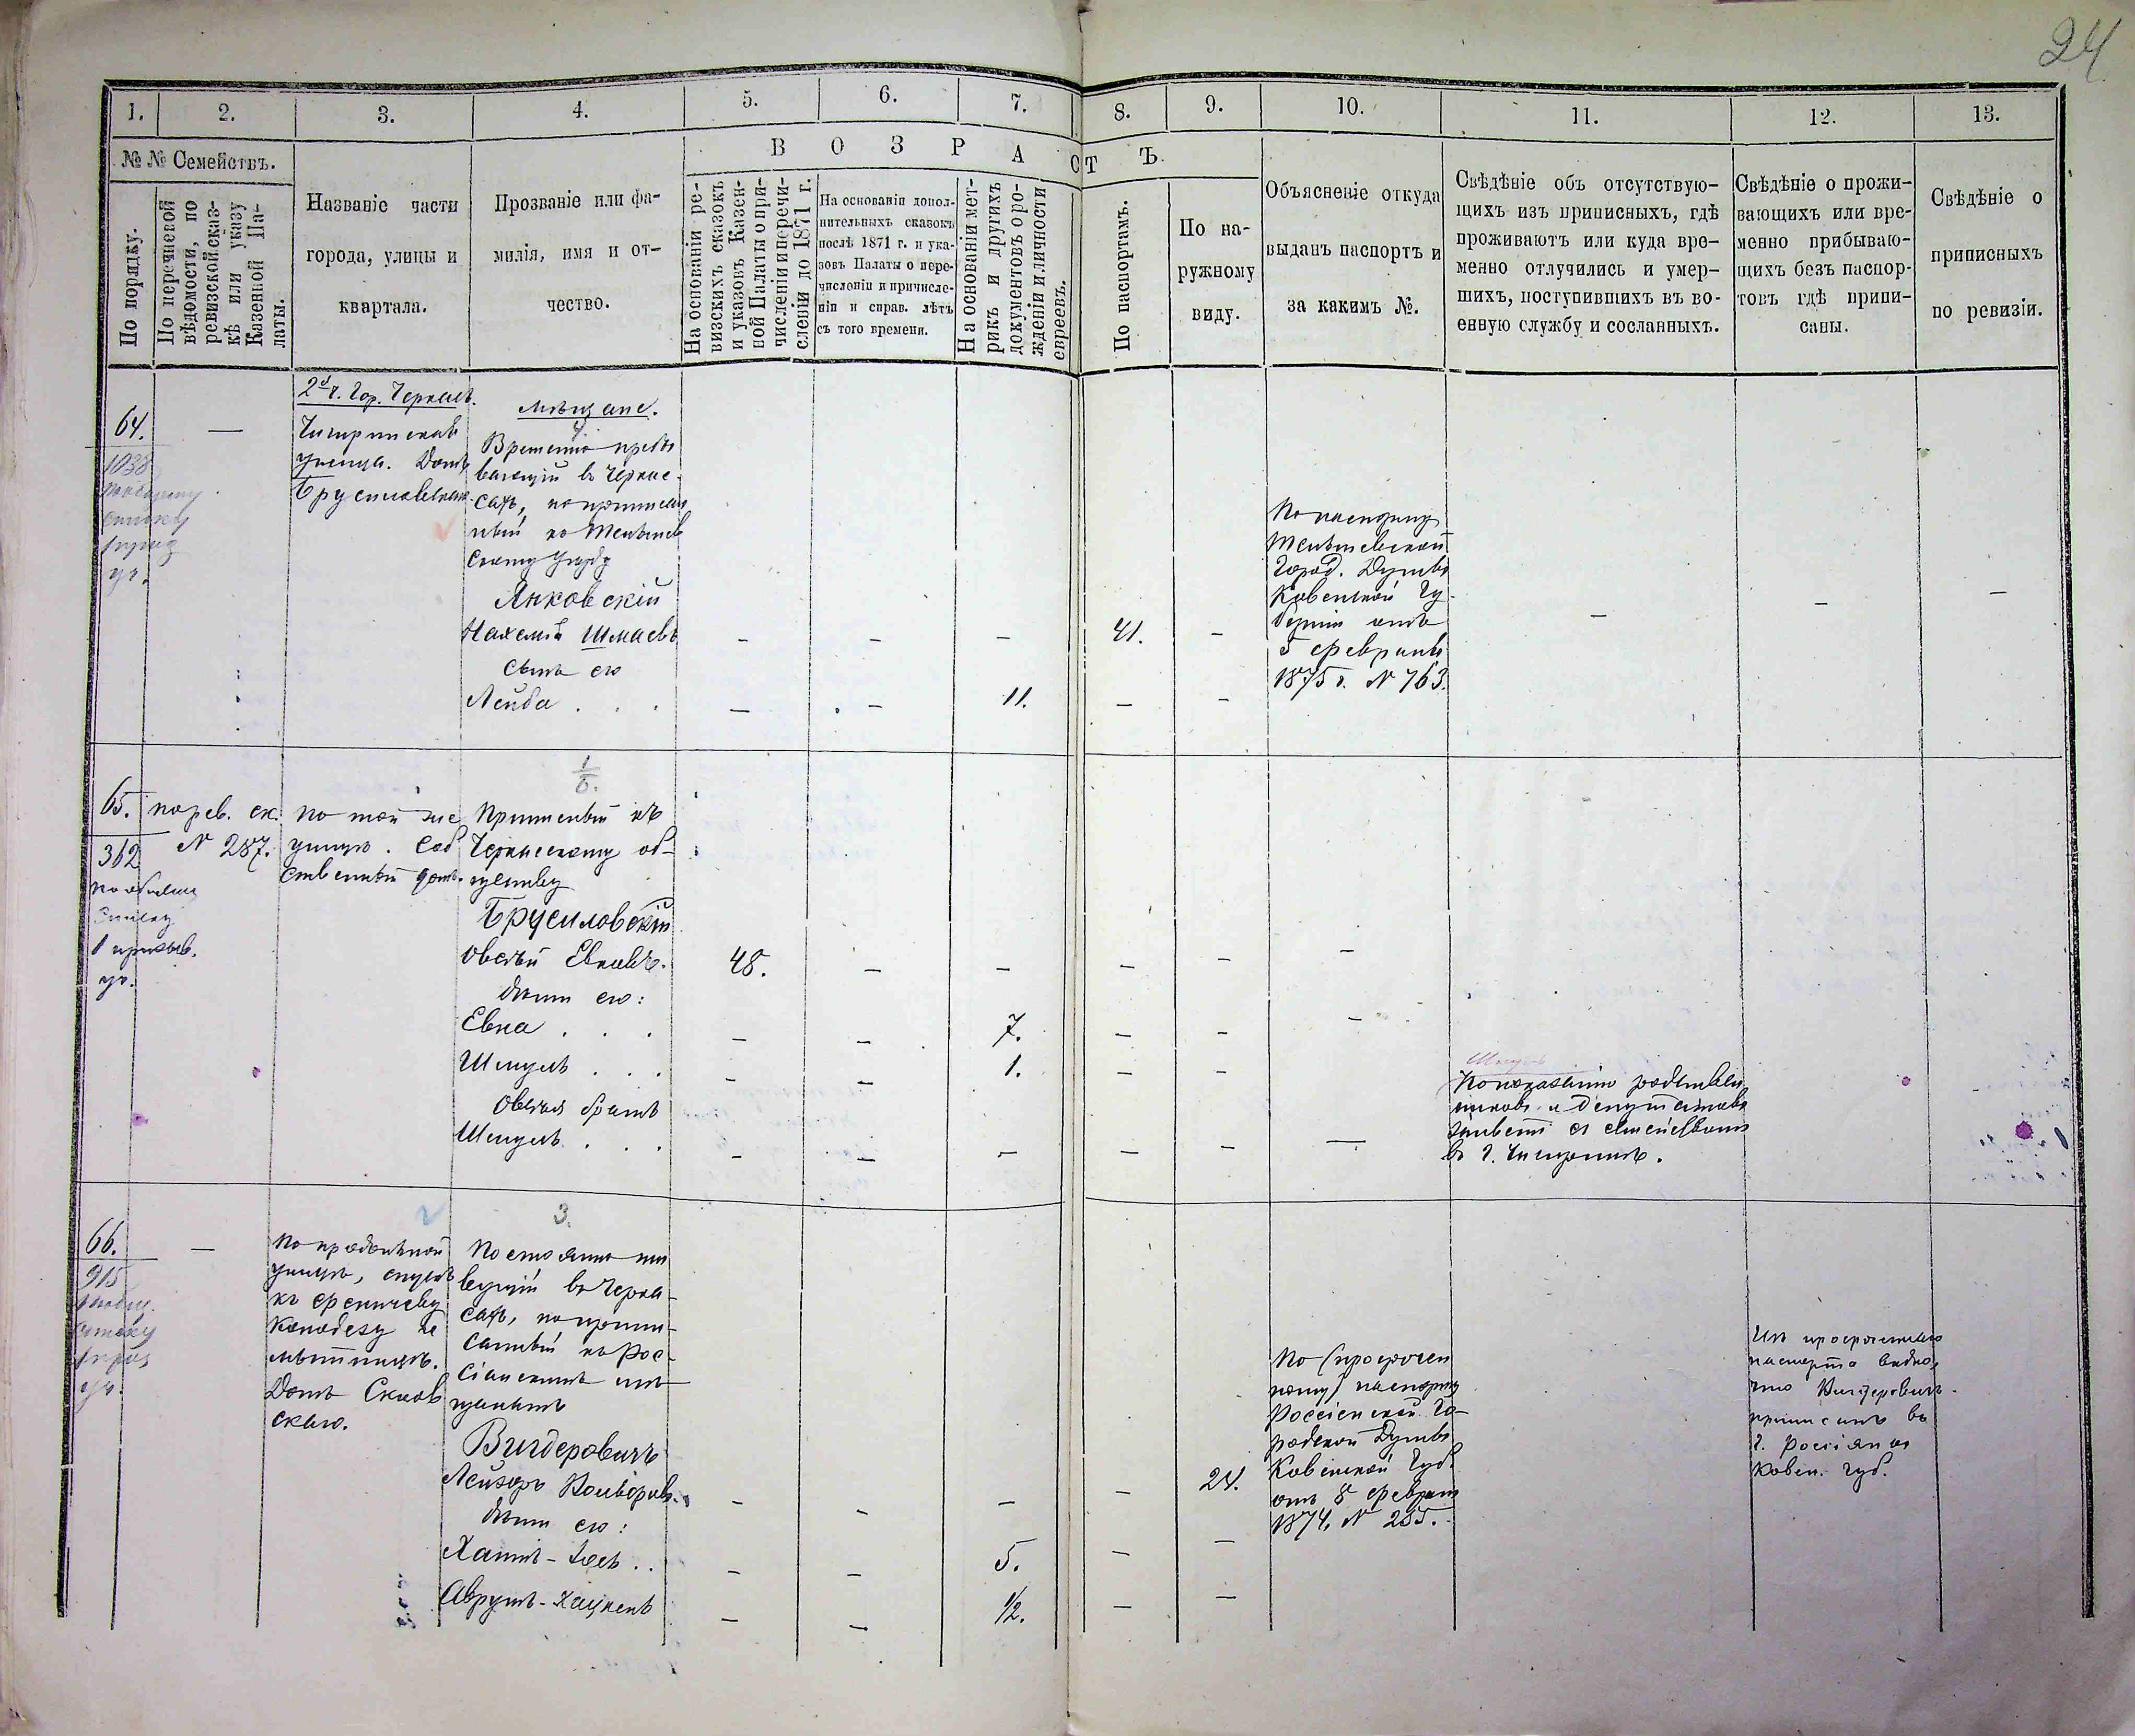 24
1.
2.
3.
4.
5.
6.
7.
8.
9.
10.
11.
12.
13.
№ № Семействъ.
По порядку.
По перечневой
вѣдомости, по
ревизской сказ-
кѣ или указу
Казенной Па-
латы.
Названіе части
города, улицы и
квартала.
Прозваніе или фа-
милія, имя и от-
чество.
В О З Р А С Т Ъ.
На основаніи ре-
визскихъ сказокъ
и указовъ Казен-
ной Палаты о при-
численіи и перечи-
сленіи до 1871 г.
На основаніи допол-
нительныхъ сказокъ
послѣ 1871 г. и ука-
зовъ Палаты о пере-
численіи и причисле-
ніи и справ. лѣтъ
съ того времени.
На основаніи мет-
рикъ и другихъ
документовъ о ро-
жденіи и личности
евреевъ.
По паспортамъ.
По на-
ружному
виду.
Объясненіе откуда
выданъ паспортъ и
за какимъ №.
Свѣдѣніе объ отсутствую-
щихъ изъ приписныхъ, гдѣ
проживаютъ или куда вре-
менно отлучились и умер-
шихъ, поступившихъ въ во-
енную службу и сосланныхъ.
Свѣдѣніе о прожи-
вающихъ или вре-
менно прибываю-
щихъ безъ паспор-
товъ гдѣ припи-
саны.
Свѣдѣніе о
приписныхъ
по ревизіи.
64.
1038
—
2й ч. Гор. Черкасъ.
улица. Домъ
мѣщане.
Временно пребы
вающій въ Черкас-
сахъ, но приписан
ный къ Тельшев
скому уѣзду
Янковскій
Нахемія Шмаевъ
— — — 41. —
сынъ его
Лейба . . .
— — 11. — —
По паспорту
Тельшевской
Город. Думы
Ковенской Гу-
берніи отъ
5 февраля
1875 г. N 763.
— — —
1/6.
65.
362
1 призыв.
уч.
по рев. ск.
N 287.
по той же
улицѣ. Соб
ственный домъ.
Приписный къ
Черкасскому об-
ществу
Брусиловскій
Овсѣй Евновъ.
48. — — — — —
дѣти его:
Евна . . .
— — 7. — — —
Шмуль . . .
— — 1. — —
Овсѣя братъ
Шмуль . . .
— — — — — —
По показанію родствен
никовъ и депутатовъ
живетъ съ семействомъ
въ г. Чигиринѣ.
3.
66.
915
—
улицѣ, спускъ
колодезу
Домъ
Постоянно жи
вущій въ Черка-
сахъ, но припи-
санный къ Рос-
сіанскимъ мѣ
щанамъ
Вигдеровичъ
Лейзоръ
— — — — 24.
дѣти его:
Хаимъ-
— — 5. — —
Аврумъ-Хацкель
— — 1/2. — —
По (просрочен
ному) паспорту
Россіенской Го-
родской Думы
Ковенской Губ.
отъ 8 февраля
1874, N 255.
Изъ просроченнаго
паспорта видно,
что Вигдеровичъ
приписанъ въ
г. Россіянахъ
Ковен. губ.